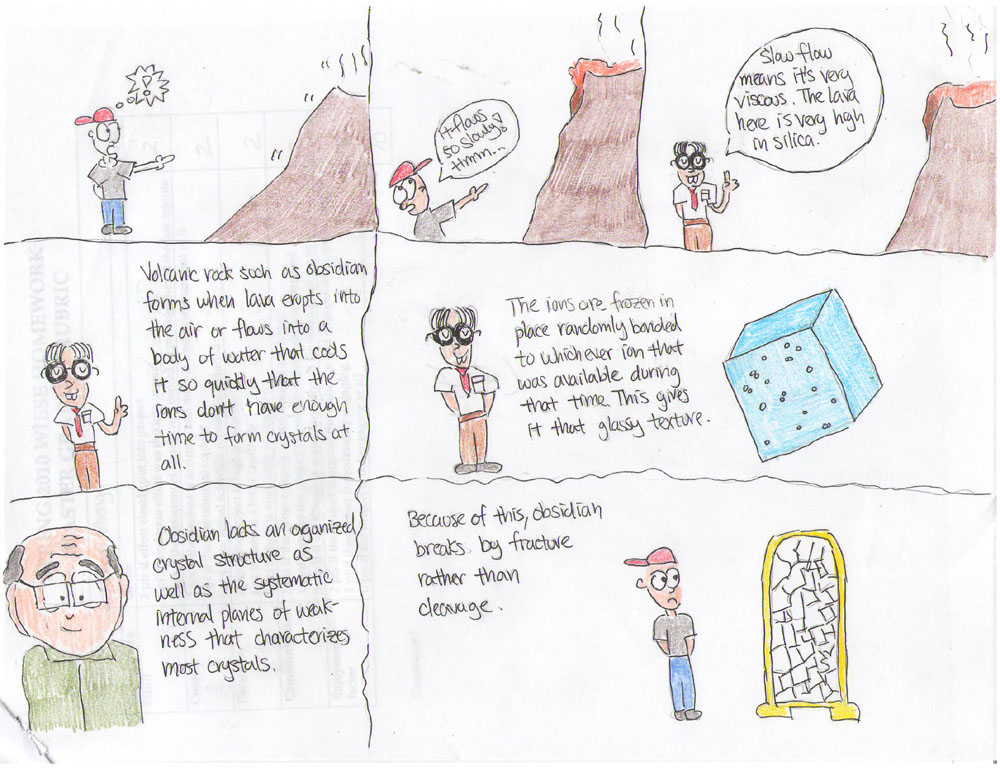 !?!
It flows
so slowly?
Hmm...
Slow flow
means it's very
viscous. The lava
here is very high
in silica.
Volcanic rock such as obsidian
forms when lava erupts into
the air or flows into a
body of water that cools
it so quickly that the
ions don't have enough
time to form crystals at
all.
The ions are frozen in
place randomly bonded
to whichever ion that
was available during
that time. This gives
it that glassy texture.
Obsidian lacks an organized
crystal structure as
well as the systematic
internal planes of weak-
ness that characterizes
most crystals.
Because of this, obsidian
breaks by fracture
rather than
cleavage.